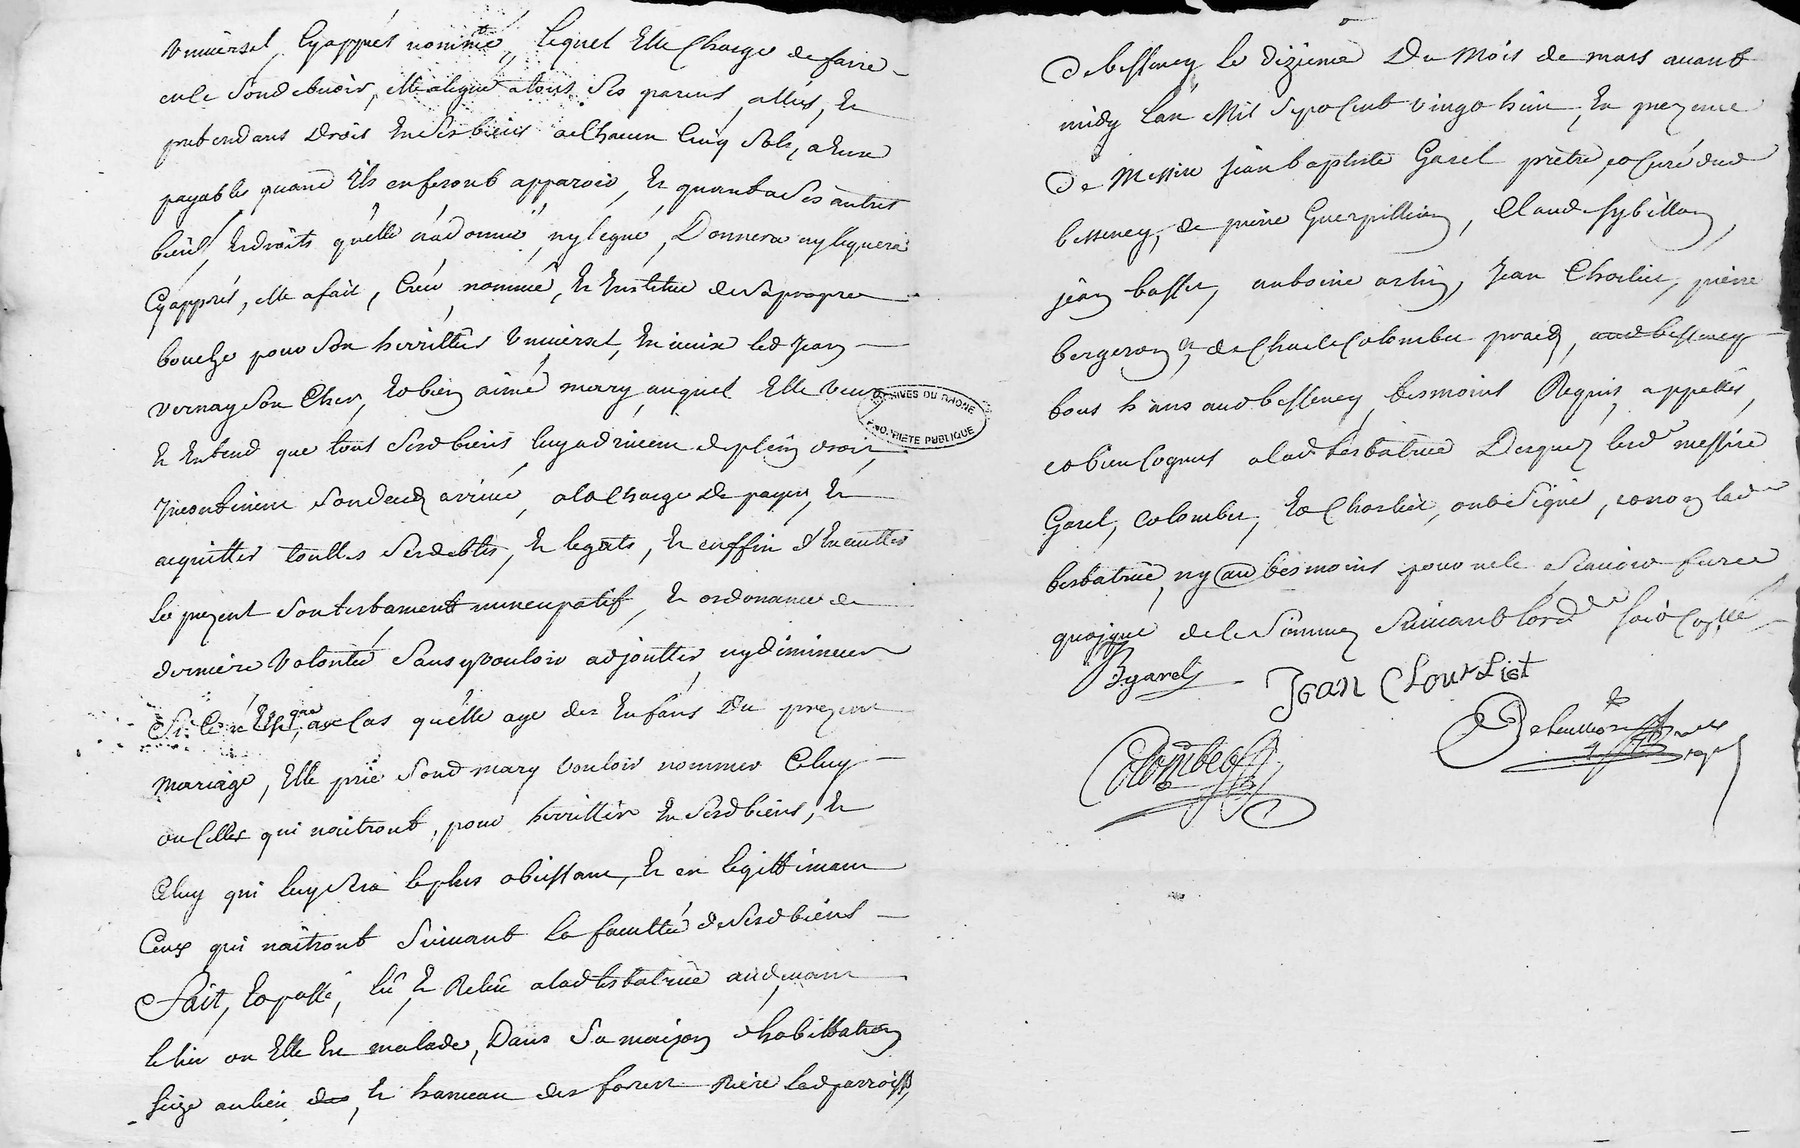 universel cyapprés nommé, lequel Elle Charge de faire
en le Sondebvoir, elle a legué a tous Ses parens, alliés, Et
pretendans Droit En Sesbiens a chacun Cinq Sols, a Eux
payables quand ils enferont apparoir, Et quant a Ses autres
biens, Et droits quelle n'a donné, ny legué, Donnera ny leguera
Cyapprés, elle a fait, Créé, nommé, Et Institue de Sa propre
bouche pour Son herittier Universel, led Jean
vernay Son Cher, Et bien aimé mary auquel Elle veut
Et Entend que tous Sesd biens luy advinent de plein droit
Incontinent Son deceds arrivé, a la Charge de payer, Et
acquitter touttes Ses debtes, Et legats, Et enffin d'Executter
le prezent Son testament nuncupatif, Et ordonance de
derniere Volonté Sans y vouloir adjoutter, ny diminuer
Si ce n'Est que, au Cas qu'elle aye des Enfans Du prezent
Mariage, Elle prie Sond mary vouloir nommer Celuy
ou Celles qui naitront, pour herittier En Sesd biens, Et
Celuy qui luy Sera le plus obeissant, Et en legittimant
Ceux qui naitront Suivant la faculté de Sesd biens
Fait, Et passé, lû, Et Relû a lad testatrice audevant
le lieu ou Elle Est malade, Dans Sa maizon d'habittation
Size au lieu, Et hameau des foret Riere lad parroisse
De bessenay le dizieme Du Mois de mars avant
midy l'an Mil Sept Cent vingt huit, En prezence
De Messire Jean baptiste Garel prêtre, et Curé dud
bessenay, de pierre Guerpillion, Claude Sybillon,
jean basset, antoine, Jean Chorliet, pierre
bergeron, Et de Charle Colombet pratn, aud bessenay
tous h'ans aud bessenay, tesmoins Requis, appellés,
et bien Cognus a lad testatrice Desquels lesd messire
Garel, Colombet, Et Chorliet, ont Signé, et non lad
testatrice, ny au tesmoins pour ne le Scavoir faire
quoique de le Sommés Suivant lord Soit Controllé
Bgarel
Jean Chourliet
Colombet